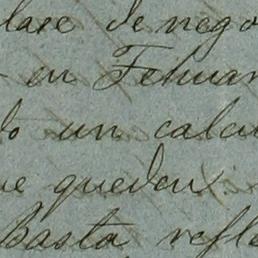 clase de nego
en Tehuan
do un calcu
ue queden
Basta refle